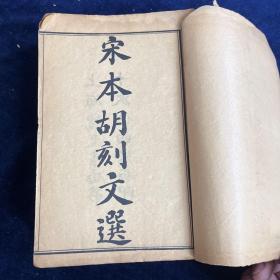 宋本胡刻文選